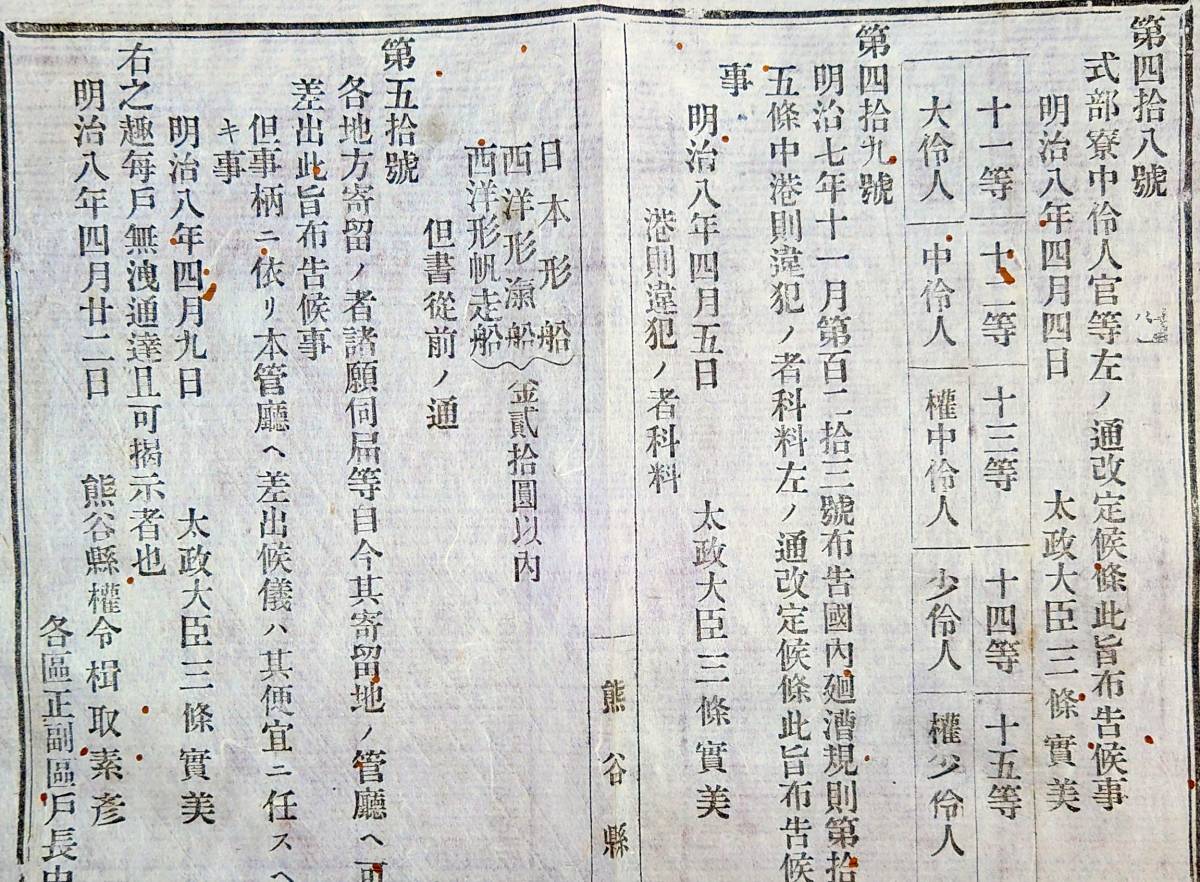 第四拾八號
式部寮中伶人官等左ノ通改定候條此旨布告候事
明治八年四月四日　太政大臣三條實美
十一等　十二等　十三等　十四等　十五等
大伶人　中伶人　權中伶人　少伶人　權少伶人
第四拾九號
明治七年十一月第百二拾三號布告國內廻漕規則第拾
五條中港則違犯ノ者科料左ノ通改定候條此旨布告候
事
明治八年四月五日　太政大臣三條實美
港則違犯ノ者科料
熊谷縣
日本形船
西洋形滊船　金貳拾圓以內
西洋形帆走船
但書從前ノ通
第五拾號
各地方寄留ノ者諸願伺屆等自今其寄留地ノ管廳ヘ可
差出此旨布告候事
但事柄ニ依リ本管廳ヘ差出候儀ハ其便宜ニ任スヘ
キ事
明治八年四月九日　太政大臣三條實美
右之趣每戶無洩通達且可揭示者也
明治八年四月廿二日　熊谷縣權令楫取素彥
各區正副區戶長中